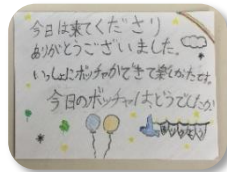 今日は来てくださり
ありがとうございました。
いっしょにボッチャができて楽しかたです。
今日のボッチャはどうでしたか